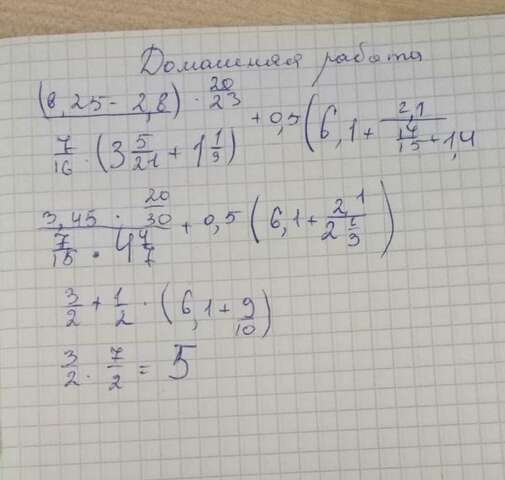 Домашняя работа
(8,25 - 2,8) · 20/23
7/16 · (3 5/21 + 1 1/3) + 0,5 (6,1 + 2,1 / (14/15 + 1,4
3,45 · 20/30 / 7/15 · 4 4/7 + 0,5 (6,1 + 2,1 / 2 1/3)
3/2 + 1/2 · (6,1 + 9/10)
3/2 · 7/2 = 5